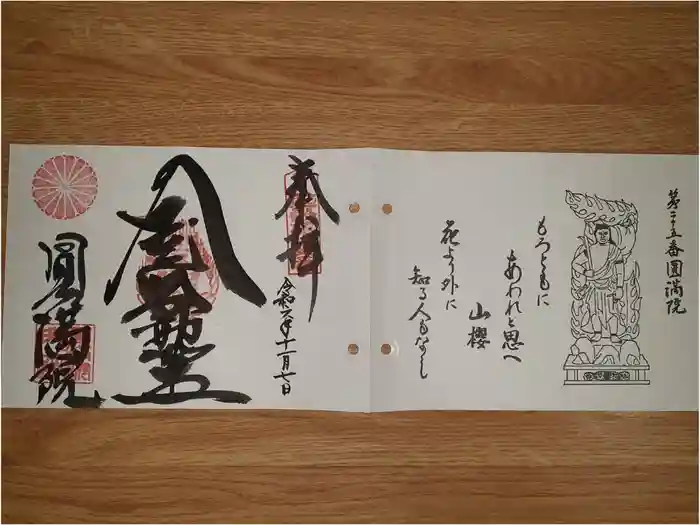 第二十五番圓満院
もろともに
あわれと思へ
山櫻
花より外に
知る人もなし
奉拝
令和六年十一月七日
金剛堂
圓満院